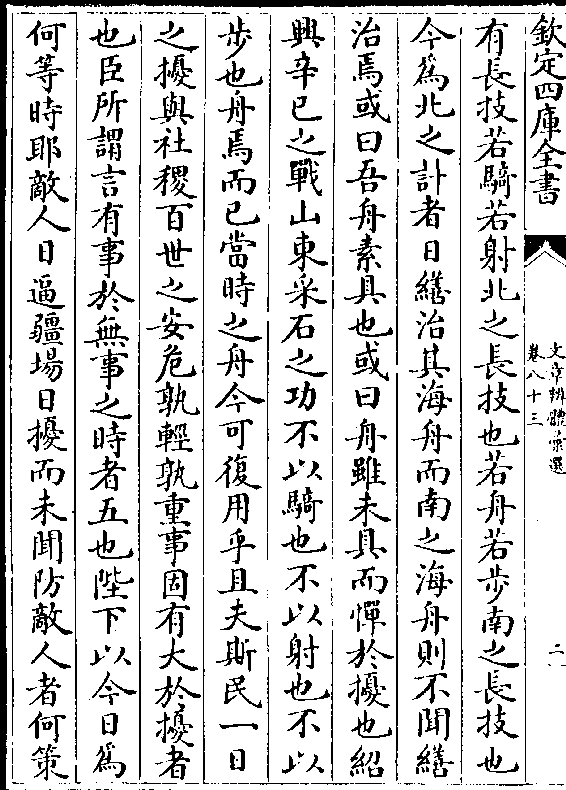 欽定四庫全書
文章辨體彙選
卷八十三
二
有長技若騎若射北之長技也若舟若步南之長技也
今爲北之計者日繕治其海舟而南之海舟則不聞繕
治焉或曰吾舟素具也或曰舟雖未具而憚於擾也紹
興辛巳之戰山東采石之功不以騎也不以射也不以
步也舟焉而已當時之舟今可復用乎且夫斯民一日
之擾與社稷百世之安危孰輕孰重事固有大於擾者
也臣所謂言有事於無事之時者五也陛下以今日爲
何等時耶敵人日逼疆場日擾而未聞防敵人者何策